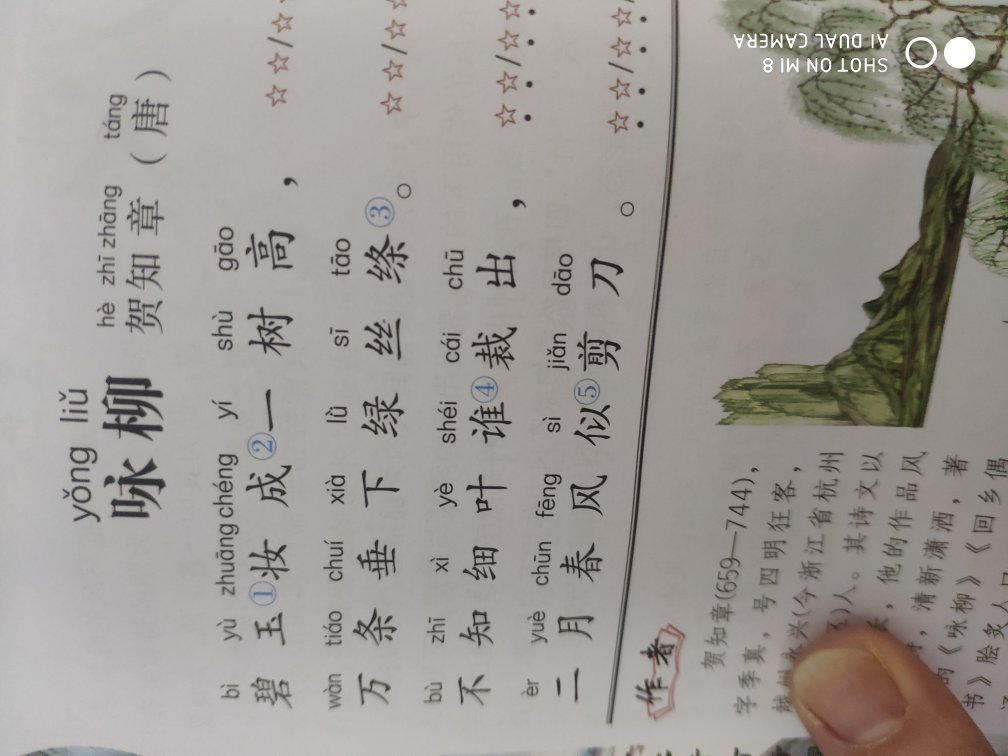 yǒng liǔ
咏柳
hè zhī zhāng táng
贺知章(唐)
bì yù zhuāng chéng yí shù gāo
碧玉①妆成②一树高,
☆☆/☆
wàn tiáo chuí xià lǜ sī tāo
万条垂下绿丝绦③。
☆☆/☆
bù zhī xì yè shéi cái chū
不知细叶谁④裁出,
☆☆/☆
èr yuè chūn fēng sì jiǎn dāo
二月春风似⑤剪刀。
☆☆/☆
作者
贺知章(659—744),
字季真,号四明狂客,
越州永兴(今浙江省杭州
)人。其诗文以
,他的作品风
,清新潇洒,著
的《咏柳》《回乡偶
书》脍炙人口
SHOT ON MI 8
AI DUAL CAMERA